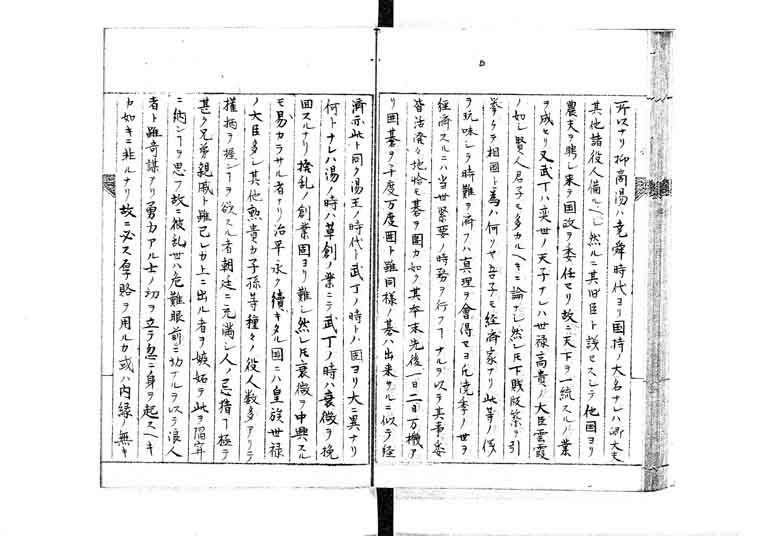 所以ナリ抑商湯ハ堯舜時代ヨリ国持ノ大名ナレハ卿大夫
其他諸役人備ルヘシ然ルニ其旧臣ト議セスシテ他国ヨリ
農夫ヲ聘シ来ヲ国政ヲ委任セリ故ニ天下ヲ一統スルノ業
ヲ成セリ又武丁ハ奕世ノ天子ナレハ世禄高貴ノ大臣雲霞
ノ如シ賢人君子モ多カルヘキニ論ナシ然レ𪜈下賤版築ヲ引
挙ケテ相国ト為ハ何リヤ吾子モ経済家ナリ此等ノ
ヲ玩味シテ時難ヲ済フハ真理ヲ會得セヨ氏澆季ノ世ヲ
経済スルニハ当世緊要ノ時務ヲ行フ ナルヲ以テ其事
皆活溌々地恰モ碁ヲ囲カ如ク其本末先後一日二日万機ア
リ囲碁ヲ千度万度囲ト雖同様ノ碁ハ出来サルニ似テ経
済亦此ト同ク湯王ノ時代ト武丁ノ時トハ固ヨリ大ニ異ナリ
何トナレハ湯ノ時ハ草創ノ業ニテ武丁ノ時ハ衰微ヲ挽
回スルナリ撥乱ノ創業固ヨリ難シ然レ𪜈衰微ヲ中興スル
モ易カラサル者ナリ治平永ク續キタル国ニハ皇族世禄
ノ大臣多シ其他勲貴カ子孫等種々ノ役人数多アリテ
権柄ヲ握ンヿヲ欲スル者朝廷ニ充満シ人ノ忌猜ヿ極テ
甚ク兄弟親戚ト雖己レカ上ニ出ル者ヲ嫉妬テ此ヲ陷穽
ニ納ンヿヲ思フ故ニ彼乱世ハ危難眼前ニ切ナルヲ以テ浪人
者ト雖奇謀アリ勇力アル士ノ功ヲ立テ忽ニ身ヲ起スヘキ
カ如キニ非ルナリ故ニ必ス厚賂ヲ用ルカ或ハ内縁ノ無キ